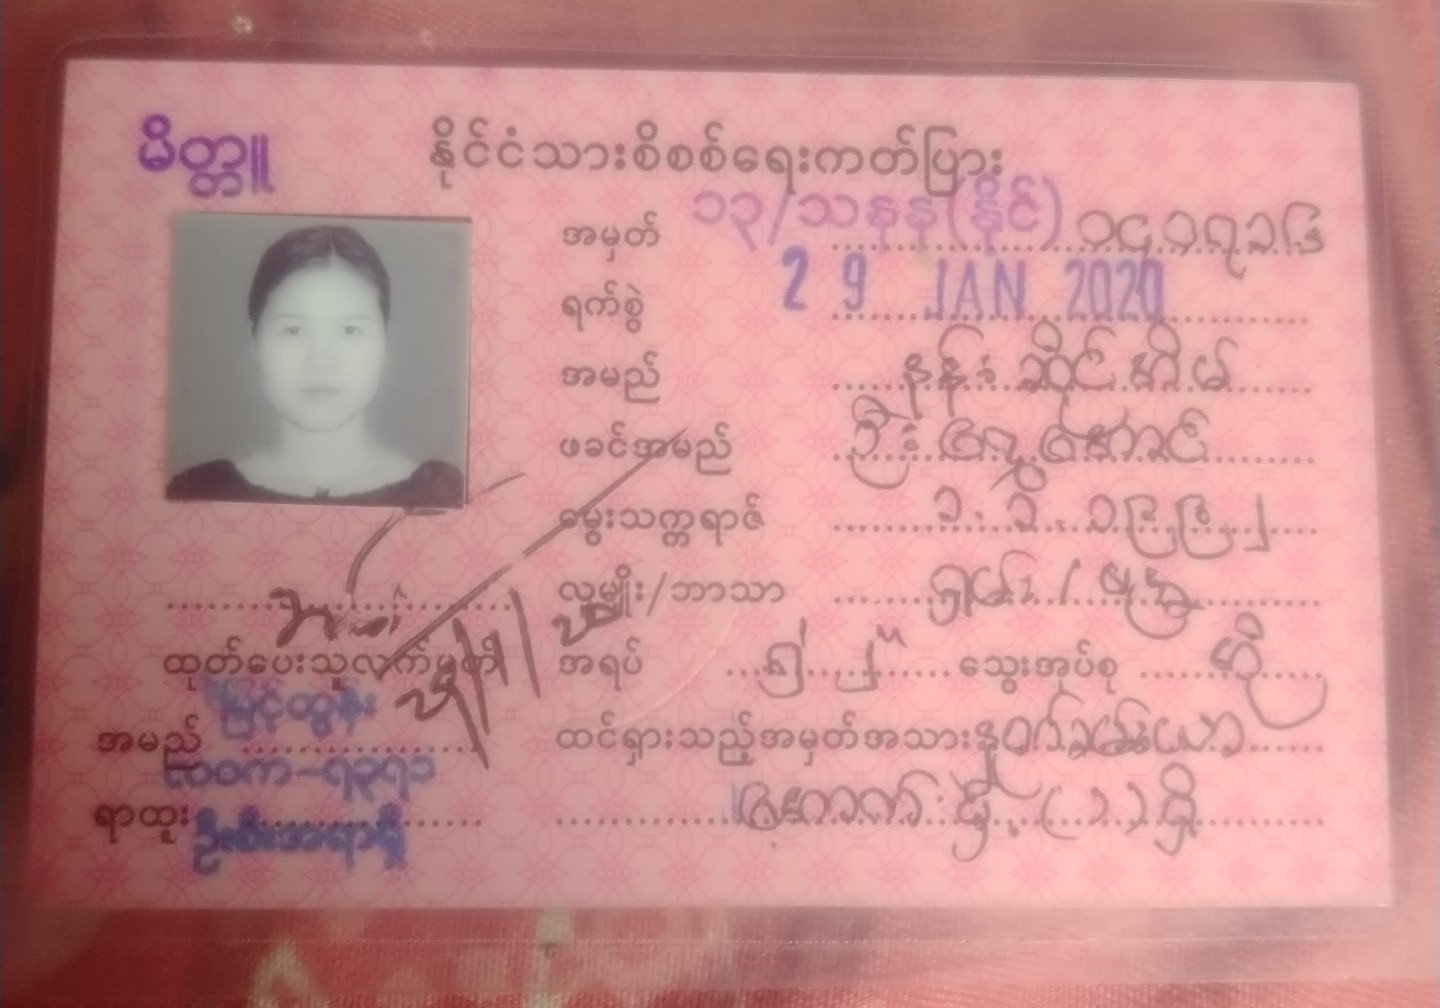 မိတ္တူ
နိုင်ငံသားစိစစ်ရေးကတ်ပြား
အမှတ် ၁၃/သနန(နိုင်) ၁၄၁၇၁၆
ရက်စွဲ 29 JAN 2020
အမည် နန်းဆိုင်အိမ်
ဖခင်အမည် ဦး
မွေးသက္ကရာဇ် ၁.၁.၁၉၉၂
လူမျိုး/ဘာသာ ရှမ်း/ဗုဒ္ဓ
အရပ် ၅' ၂" သွေးအုပ်စု အို
ထင်ရှားသည့်အမှတ်အသား
ထုတ်ပေးသူလက်မှတ်
အမည် မြင့်ထွန်း
လဝက-၇၃၇၁
ရာထူး ဦးစီးအရာရှိ